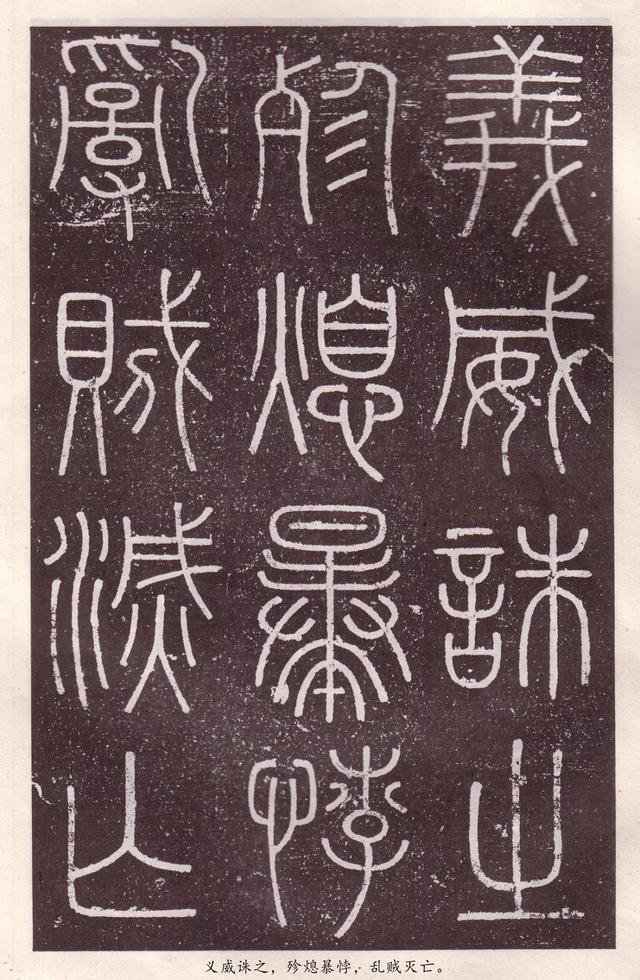 義威誅之
殄熄暴悖
亂賊滅亡
义威诛之，殄熄暴悖，乱贼灭亡。